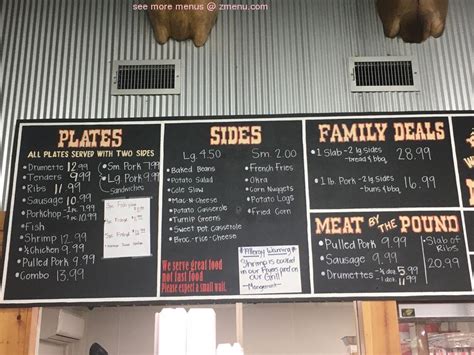 see more menus @ zmenu.com
PLATES
ALL PLATES SERVED WITH TWO SIDES
Drumette 12.99
Tenders 9.99
Ribs 11.99
Sausage 10.99
PorkChop
Fish
Shrimp 12.99
½Chicken 9.99
Pulled Pork 9.99
Combo 13.99
Sm Pork 7.99
Lg Pork 9.99
Sandwiches
SIDES
Lg. 4.50 Sm. 2.00
Baked Beans
Potato Salad
Cole Slaw
Mac-N-Cheese
Potato Casserole
Turnip Greens
Sweet Pot. casserole
Broc.-rice-Cheese
French Fries
Okra
Corn Nuggets
Potato Logs
Fried Corn
We serve great food
not fast food
Please expect a small wait.
Allergy Warning
Shrimp is cooked
in our Fryers and on
our Grill!
-Management-
FAMILY DEALS
1 Slab - 2 lg sides
- bread & bbq 28.99
1 lb. Pork - 2 lg sides
- buns & bbq 16.99
MEAT BY THE POUND
Pulled Pork 9.99
Sausage 9.99
Drumettes
Slab of
Ribs
20.99